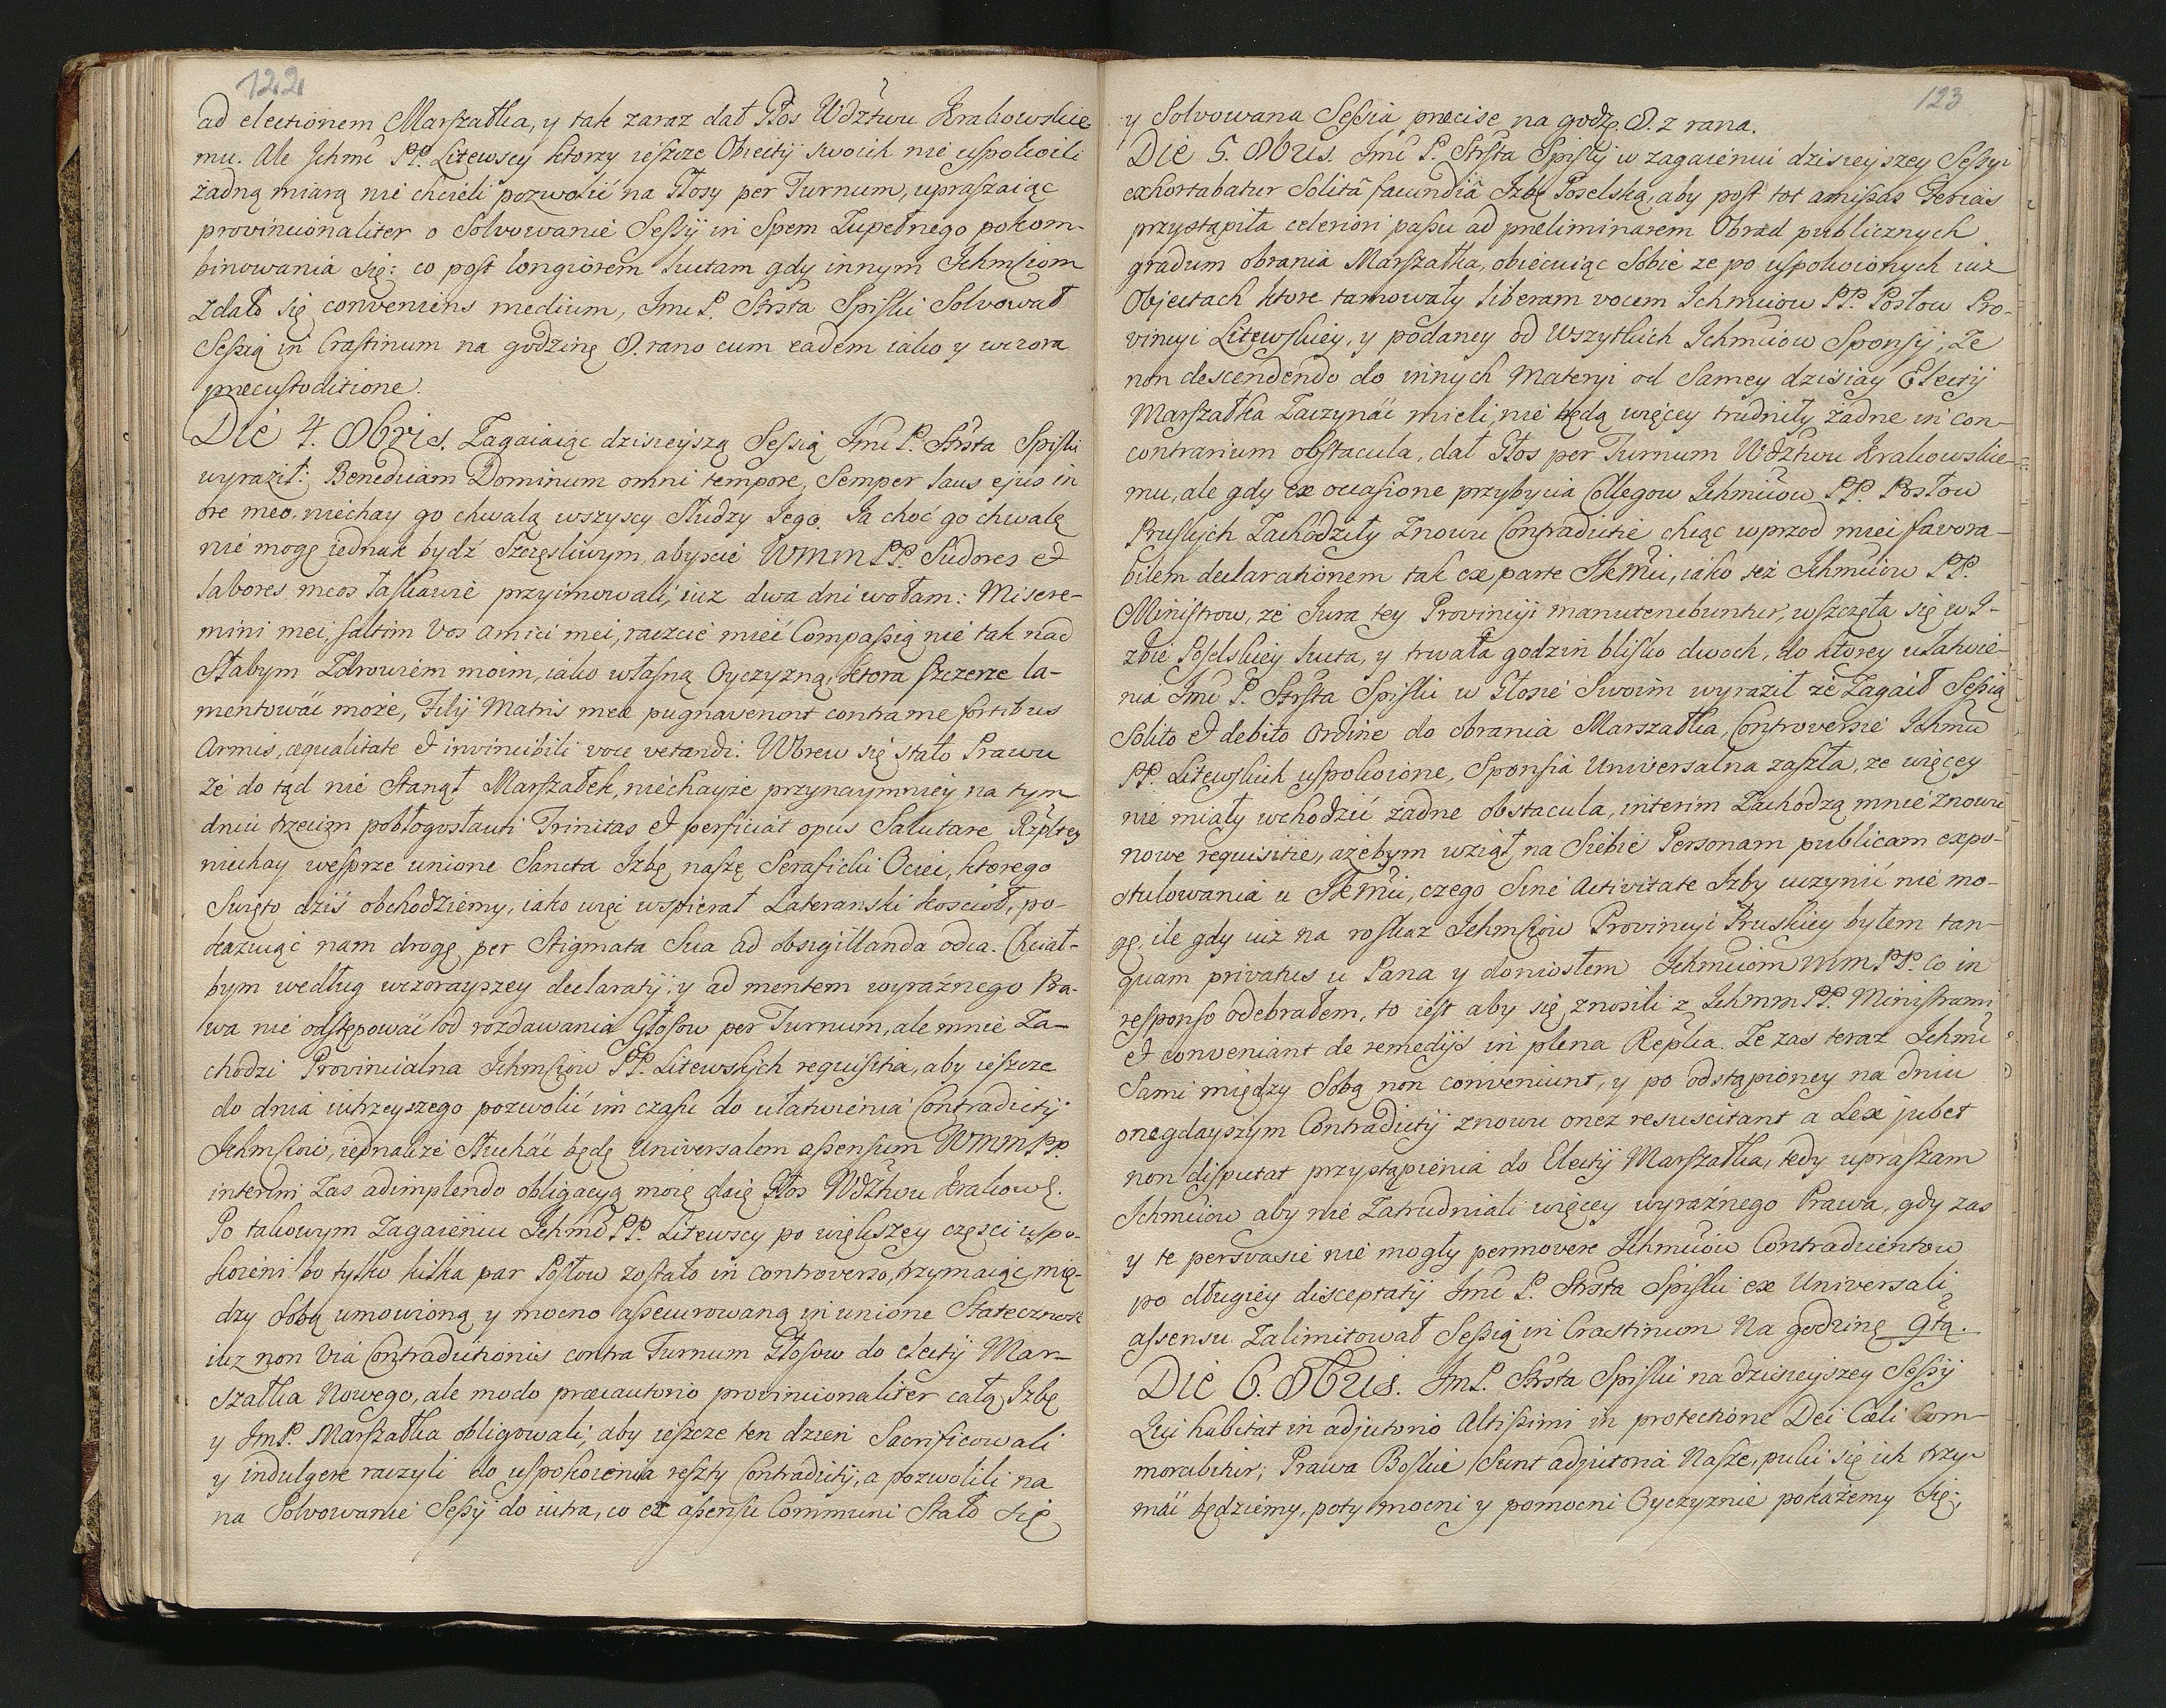 122
ad electionem Marszałka, y tak zaraz dał Głos Wdztwu Krakowskie
mu. Ale Ichmć PP. Litewscy ktorzy ieszcze Obiectij swoich nie uspokoili
żadną miarą nie chcieli pozwolić na Głosy per Turnum, upraszaiąc
provincionaliter o Solvowanie Sessij in Spem Zupełnego pokom-
binowania się: co post longiorem luctam gdy innym Ichmściom
zdało się conveniens medium, Jmć P. Strsta Spiski Solvował
Sessią in Crastinum na godzinę 8. rano cum eadem iako y wczora
præcustoditione.
Die 4. 8bris. Zagaiaiąc dzisieyszą Sessią Jmć P. Strsta Spiski
wyraził: Benedicam Dominum omni tempore, Semper laus ejus in
ore meo, niechay go chwalą wszyscy Słudzy Jego. Ja choć go chwalę
nie mogę iednak bydź Szczęsliwym, abyscie WMM PP. Sudores et
labores meos łaskawie przyimowali, iuz dwa dni wołam: Misere-
mini mei, saltim vos amici mei, raczcie mieć Compassią nie tak nad
Słabym Zdrowiem moim, iako własną Oyczyzną, ktora szczerze la-
mentować może, Filij Matris meæ pugnaverunt contra me fortibus
Armis, æqualitate et invincibili voce vetandi. Wbrew się stało Prawu
że do tąd nie Stanął Marszałek, niechayże przynaymniey na tym
dniu trzecim pobłogosławi Trinitas et perficiat opus Salutare Rzpltey
niechay wesprze unione Sancta Izbę naszę Seraficki Ociec, ktorego
Swięto dziś obchodziemy, iako więc wspierał Lateranski kosciół, po-
kazuiąc nam drogę per Stigmata Sua ad obsigillanda odia. Chciał-
bym według wczorayszey declaratij, y ad mentem wyraźnego Pra-
wa nie odstępować od rozdawania Głosow per Turnum, ale mnie Za-
chodzi Provincialna Ichmściow PP. Litewskich requisitia, aby ieszcze
do dnia iutrzeyszego pozwolić im czasu do ułatwienia Contradictij
Ichmściow, iednakże Słuchać będę Universalem assensum WMM PP.
interim Zas adimplendo obligacyą moię daię Głos Wdztwu Krakowś.
Po takowym Zagaieniu Ichmć PP. Litewscy po większey częsci uspo-
koieni bo tylko kilka par Posłow zostało in controverso, trzymaiąc mię-
dzy sobą umowioną y mocno assecurowaną in unione Stateczność
iuz non via Contradictionis contra Turnum Głosow do electij Mar-
szałka Nowego, ale modo præcautorio provincionaliter całą Izbę
y JmP. Marszałka obligowali, aby ieszcze ten dzień Sacrificowali
y indulgere raczyli do uspokoienia reszty Contradictij, a pozwolili na
na Solvowanie Sessij do iutra, co ex assensu Communi Stało się
123
y Solvowana Sessia præcise na godzę. 8. z rana.
Die 5. 8bris. Jmć P. Strsta Spiskij w zagaieniu dzisieyszey Sessyi
exhortabatur Solitâ facundiâ Izbę Poselską, aby post tot amissas Ferias
przystąpiła celeriori passu ad præliminarem Obrad publicznych
gradum obrania Marszałka, obiecuiąc Sobie ze po uspokoionych iuż
Objectach ktore tamowały liberam vocem Ichmciow PP. Posłow Pro-
vincyi Litewskiey, y podaney od Wszytkich Ichmciow Sponsij, Że
non descendendo do innych Materyi od Samey dzisiay Electij
Marszałka Zaczynać mieli, nie będą więcey trudniły żadne in con-
contrarium obstacula, dał Głos per Turnum Wdztwu Krakowskie-
mu, ale gdy ex occasione przybycia Collegow Ichmciow PP. Posłow
Pruskich Zachodziły Znowu Contradictie chcąc wprzod mieć favora-
bilem declarationem tak ex parte JKMci, iako też Ichmciow PP.
Ministrow, że Jura tey Provincyi manutenebuntur, wszczęła się w I-
zbie Poselskiey lucta, y trwała godzin blisko dwoch, do ktorey ułatwie-
nia Jmć P. Strsta Spiski w Głosie Swoim wyraził że Zagaił Sessią
Solito et debito Ordine do obrania Marszałka, Controversie Ichmć
PP. Litewskich uspokoione, Sponsia Universalna zaszła, ze więcey
nie miały wchodzić żadne obstacula, interim Zachodzą mnie znowu
nowe requisitie, ażebym wziął na Siebie Personam publicam expo-
stulowania u JKMci, czego Sine Activitate Izby uczynić nie mo-
gę, ile gdy iuż na roskaz Ichmściow Provincyi Pruskiey byłem tan-
quam privatus u Pana y doniosłem Ichmciom MM PP. co in
responso odebrałem, to iest aby się znosili z IchmM PP. Ministrami
et conveniant de remedijs in plena Replca. Że zas teraz Ichmć
Sami między Sobą non conveniunt, y po odstąpioney na dniu
onegdayszym Contradictij znowu onez resuscitant a Lex jubet
non disputat przystąpienia do Electij Marszałka, tedy upraszam
Ichmciow aby nie Zatrudniali więcey wyraźnego Prawa, gdy zas
y te persvasie nie mogły permovere Ichmciow Contradicentow
po długiey disceptatij Jmć P. Strsta Spiski ex Universali
assensu Zalimitował Sessią in Crastinum na godzinę 9tą.
Die 6. 8bris. JmP. Strsta Spiski na dzisieyszey Sessij
Qui habitat in adjutorio Altissimi in protectione Dei Cæli Com-
morabitur; Prawa Boskie Sunt adjutoria Nasze, puki się ich trzy-
mać będziemy, poty mocni y pomocni Oyczyznie pokażemy Się;